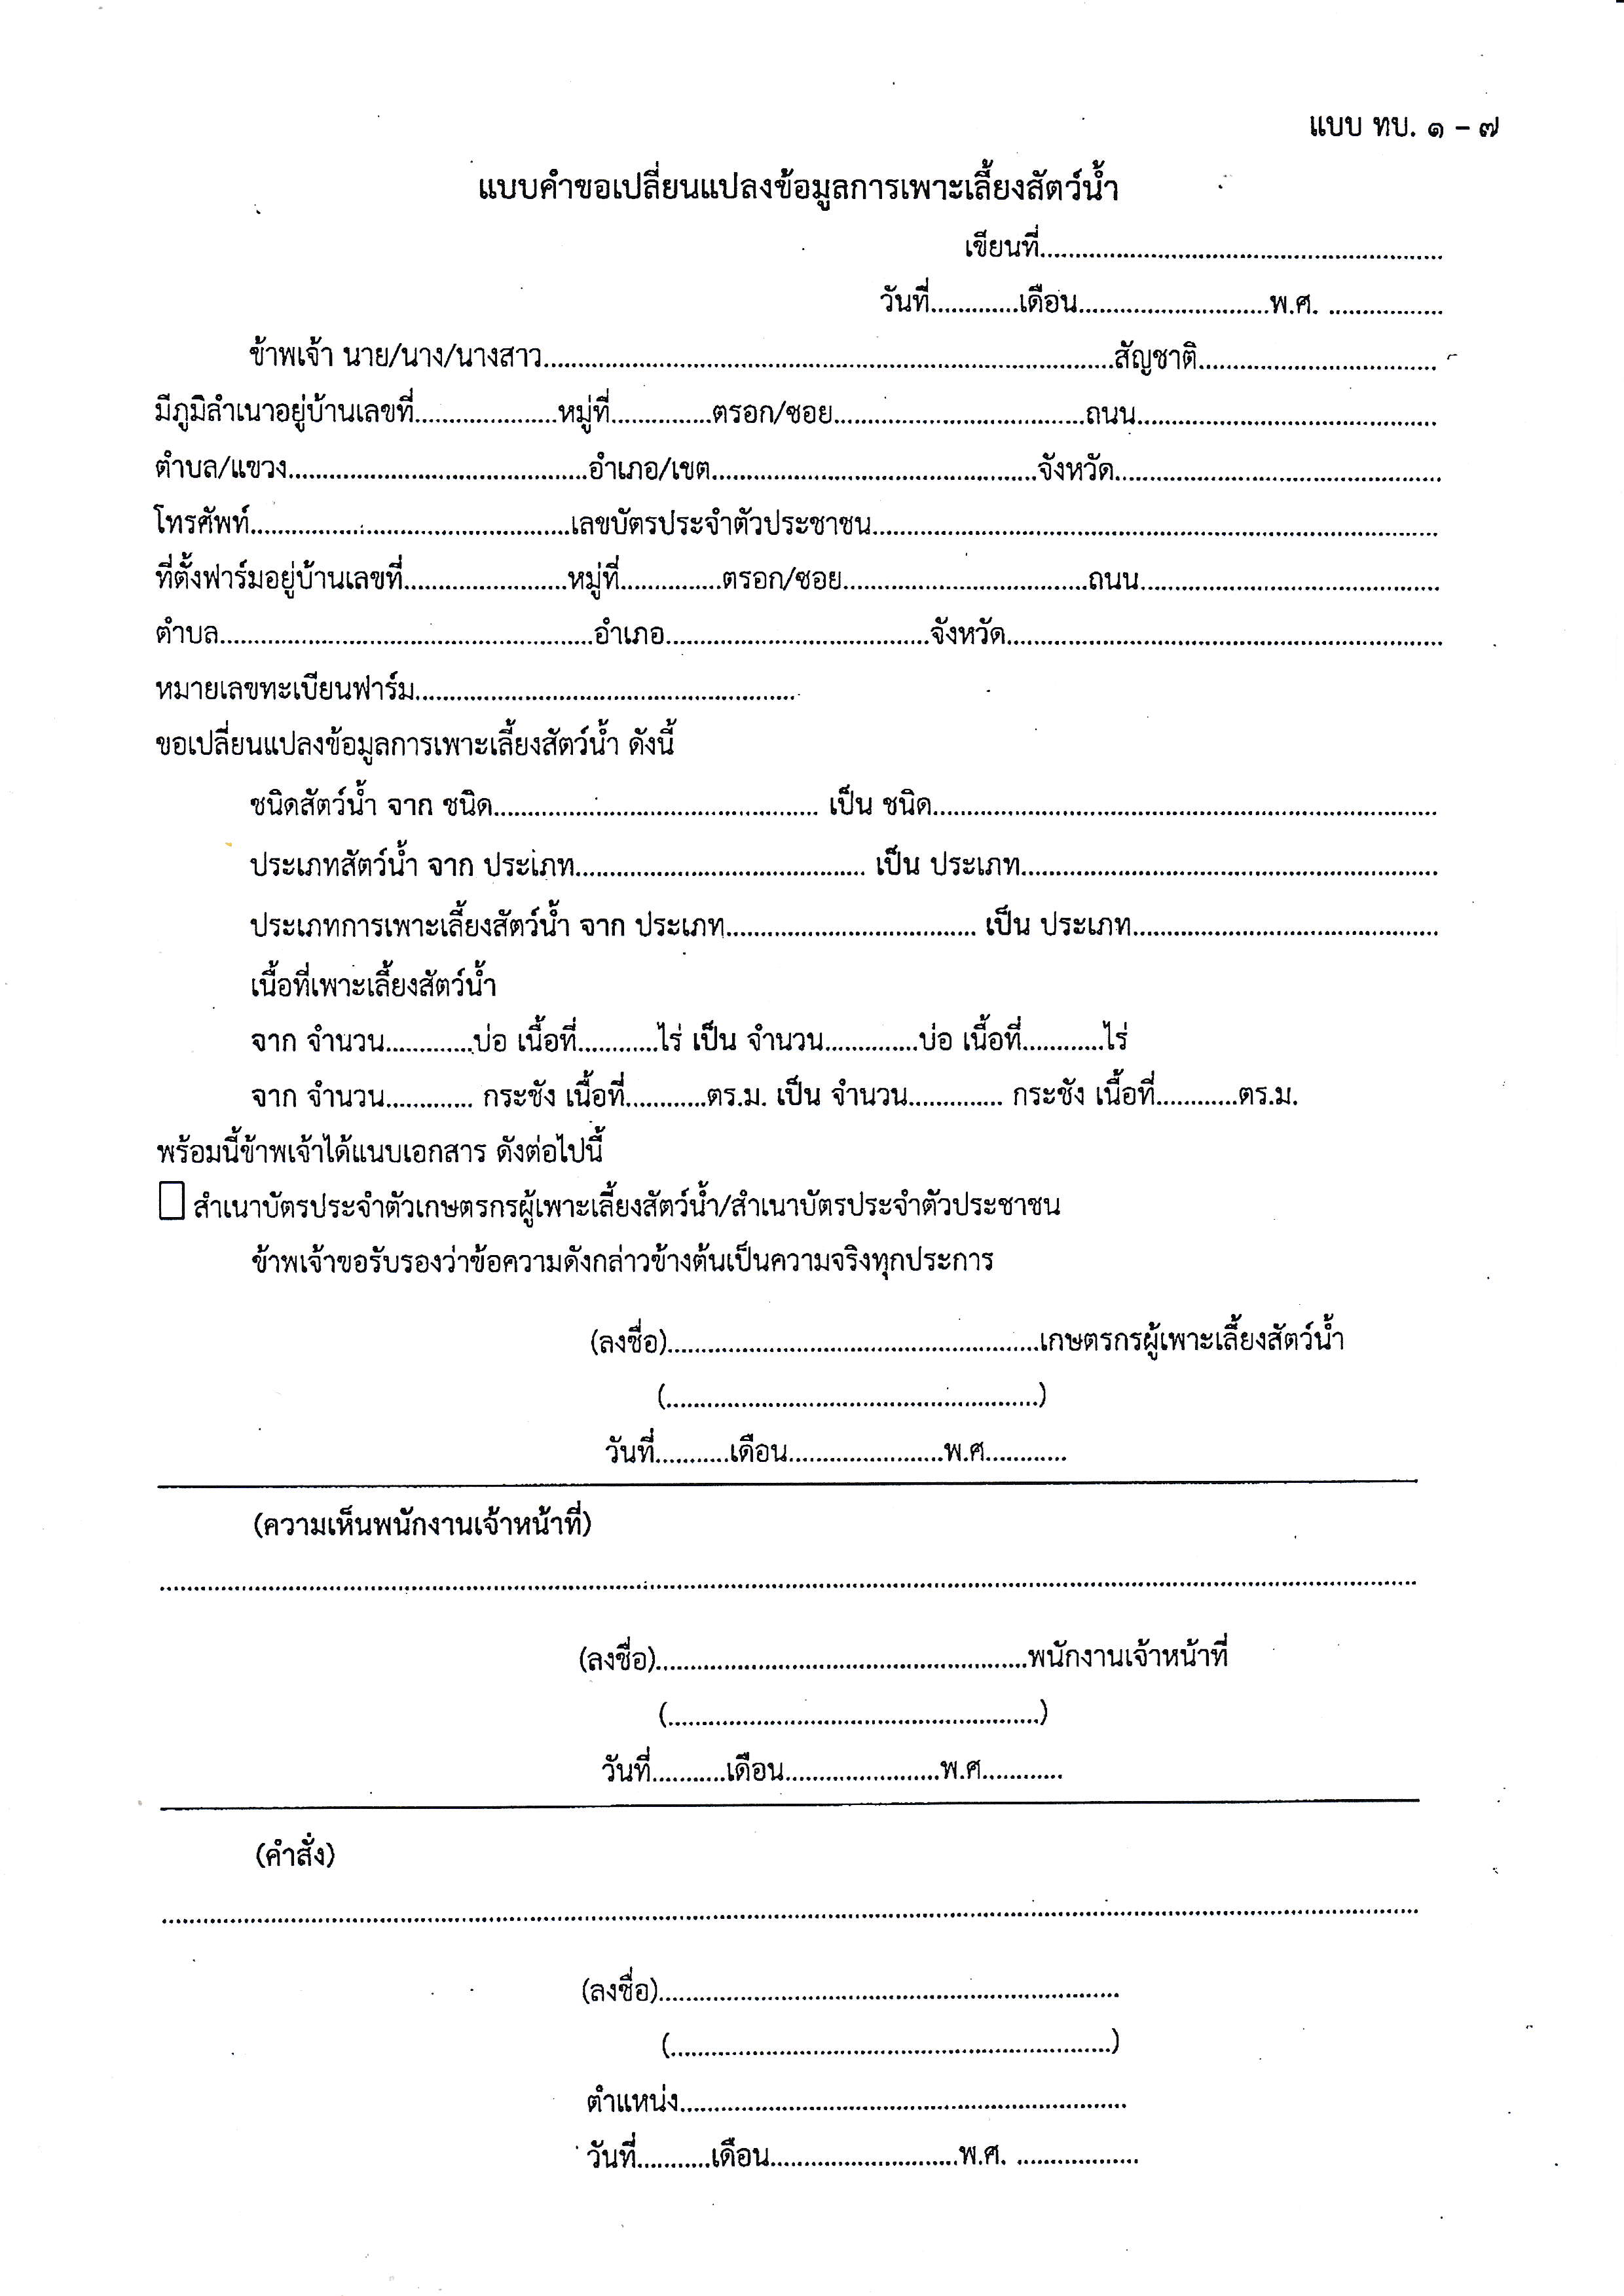 แบบ ทบ. ๑ - ๗
แบบคำขอเปลี่ยนแปลงข้อมูลการเพาะเลี้ยงสัตว์น้ำ
เขียนที่..........................................................
วันที่.............เดือน............................พ.ศ. .................
ข้าพเจ้า นาย/นาง/นางสาว....................................................................................สัญชาติ...................................
มีภูมิลำเนาอยู่บ้านเลขที่.....................หมู่ที่...............ตรอก/ซอย.....................................ถนน............................................
ตำบล/แขวง............................................อำเภอ/เขต................................................จังหวัด................................................
โทรศัพท์...............................................เลขบัตรประจำตัวประชาชน...................................................................................
ที่ตั้งฟาร์มอยู่บ้านเลขที่........................หมู่ที่...............ตรอก/ซอย....................................ถนน............................................
ตำบล.......................................................อำเภอ.......................................จังหวัด................................................................
หมายเลขทะเบียนฟาร์ม........................................................
ขอเปลี่ยนแปลงข้อมูลการเพาะเลี้ยงสัตว์น้ำ ดังนี้
ชนิดสัตว์น้ำ จาก ชนิด................................................ เป็น ชนิด..........................................................................
ประเภทสัตว์น้ำ จาก ประเภท........................................... เป็น ประเภท.............................................................
ประเภทการเพาะเลี้ยงสัตว์น้ำ จาก ประเภท..................................... เป็น ประเภท.............................................
เนื้อที่เพาะเลี้ยงสัตว์น้ำ
จาก จำนวน.............บ่อ เนื้อที่............ไร่ เป็น จำนวน..............บ่อ เนื้อที่............ไร่
จาก จำนวน............. กระชัง เนื้อที่............ตร.ม. เป็น จำนวน.............. กระชัง เนื้อที่............ตร.ม.
พร้อมนี้ข้าพเจ้าได้แนบเอกสาร ดังต่อไปนี้
☐ สำเนาบัตรประจำตัวเกษตรกรผู้เพาะเลี้ยงสัตว์น้ำ/สำเนาบัตรประจำตัวประชาชน
ข้าพเจ้าขอรับรองว่าข้อความดังกล่าวข้างต้นเป็นความจริงทุกประการ
(ลงชื่อ).......................................................เกษตรกรผู้เพาะเลี้ยงสัตว์น้ำ
(.......................................................)
วันที่...........เดือน.......................พ.ศ............
(ความเห็นพนักงานเจ้าหน้าที่)
..........................................................................................................................................................
(ลงชื่อ).......................................................พนักงานเจ้าหน้าที่
(.......................................................)
วันที่...........เดือน.......................พ.ศ............
(คำสั่ง)
..........................................................................................................................................................
(ลงชื่อ)....................................................................
(.................................................................)
ตำแหน่ง..................................................................
วันที่...........เดือน............................พ.ศ. ..................